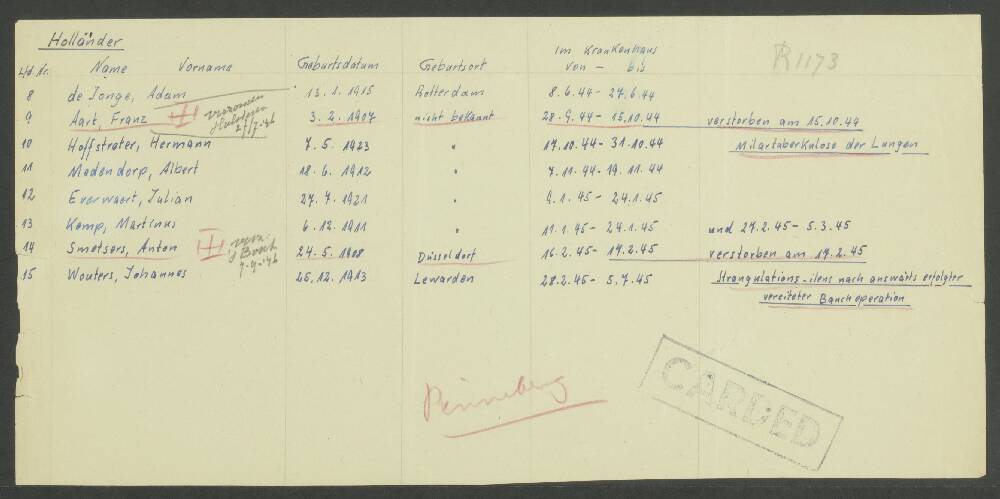 Holländer
Lfd Nr. Name Vorname Geburtsdatum Geburtsort Im Krankenhaus von - bis
R 1173
8 de Jonge, Adam 13.1.1915 Rotterdam 8.6.44 - 27.6.44
9 Aart, Franz III 3.2.1907 nicht bekannt 28.9.44 - 15.10.44 verstorben am 15.10.44
10 Hoffstrater, Hermann 7.5.1923 " 17.10.44 - 31.10.44 Miliartuberkulose der Lungen
11 Madendorp, Albert 18.6.1912 " 7.11.44 - 19.11.44
12 Everwaert, Julian 27.7.1921 9.1.45 - 24.1.45
13 Kamp, Martinus 6.12.1911 " 11.1.45 - 24.1.45 und 27.2.45 - 5.3.45
14 Smetsers, Anton III 24.5.1908 Düsseldorf 16.2.45 - 19.2.45 verstorben am 19.2.45
15 Wouters, Johannes 25.12.1913 Lewarden 28.2.45 - 5.7.45 Strangulations-ileus nach auswärts erfolgter
vereiteter Bauchoperation
Pinneberg
CARDED